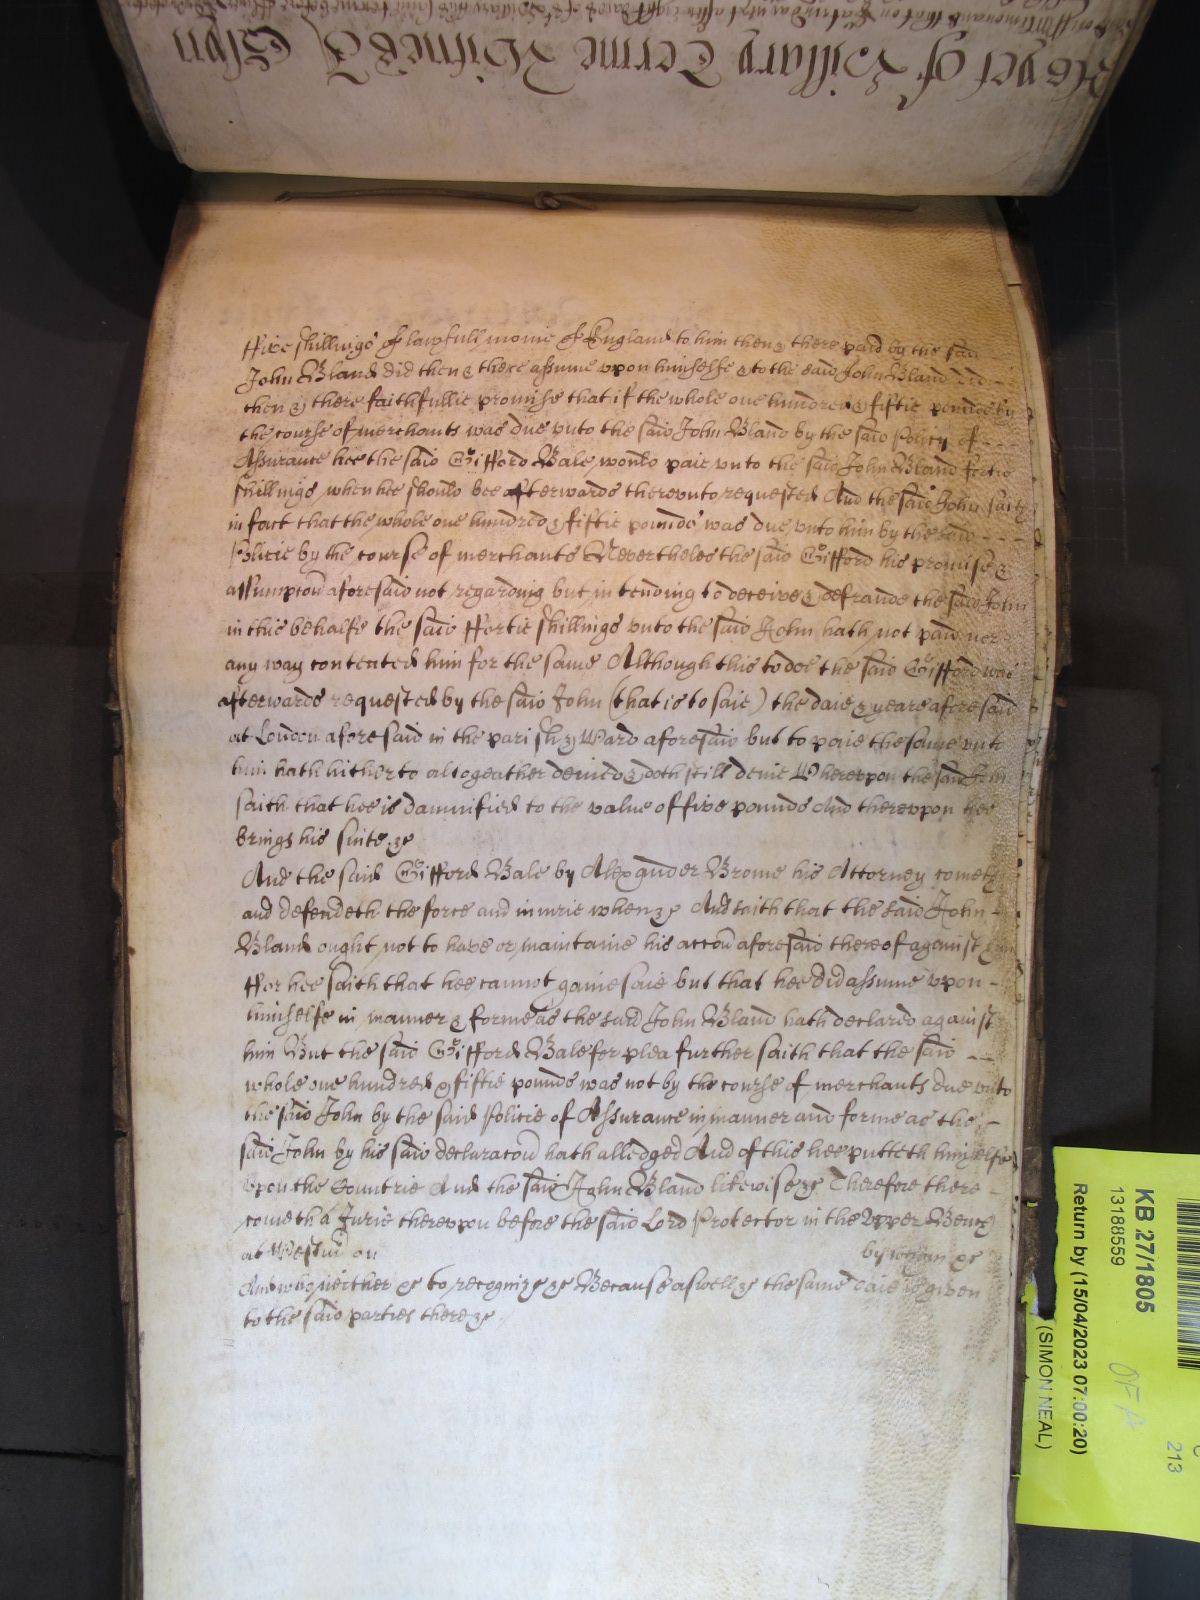 Roll of Hillary Terme Witnes J Glyn
ffive shillings of lawfull monie of England to him then & there paid by the said
John Bland did then & there assume vpon himselfe & to the said John Bland did
then & there faithfullie promise that if the whole one hundred & fiftie poundes by
the course of merchants was due vnto the said John Bland by the said Policy of
Assurance hee the said Gifford Bale would paie vnto the said John Bland fortie
shillings when hee should bee afterwards therevnto requested And the said John saith
in fact that the whole one hundred & fiftie pounds was due vnto him by the said
Policie by the course of merchants Neverthelesse the said Gifford his promise &
assumpcon aforesaid not regarding but intending to deceive & defraude the said John
in this behalfe the said ffortie shillings vnto the said John hath not paid nor
any way contented him for the same Although this to doe the said Gifford was
afterwards requested by the said John (that is to saie) the daie & yeare aforesaid
at London aforesaid in the parish & Ward aforesaid but to paie the same vnto
him hath hitherto altogeather denied & doth still denie Wherevpon the said John
saith that hee is damnified to the value of five pounds And therevpon hee
brings his suite &c
And the said Gifford Bale by Alexander Brome his Attorney cometh
and defendeth the force and iniurie when &c And saith that the said John
Bland ought not to have or maintaine his accon aforesaid thereof against him
ffor hee saith that hee cannot gainesaie but that hee did assume vpon
himselfe in manner & forme as the said John Bland hath declared against
him But the said Gifford Bale for plea further saith that the said
whole one hundred & fiftie pounds was not by the course of merchants due vnto
the said John by the said Policie of Assurance in manner and forme as the
said John by his said declaracon hath alledged And of this hee putteth himselfe
vpon the Countrie And the said John Bland likewise &c Therefore there
cometh a Jurie therevpon before the said Lord Protector in the Vpper Bench
at Westm on by whom &c
And who neither &c to recognize &c Because aswell &c the same daie is given
to the said parties there &c
KB 27/1805
13188559
Return by (15/04/2023 07:00:20)
(SIMON NEAL)
213